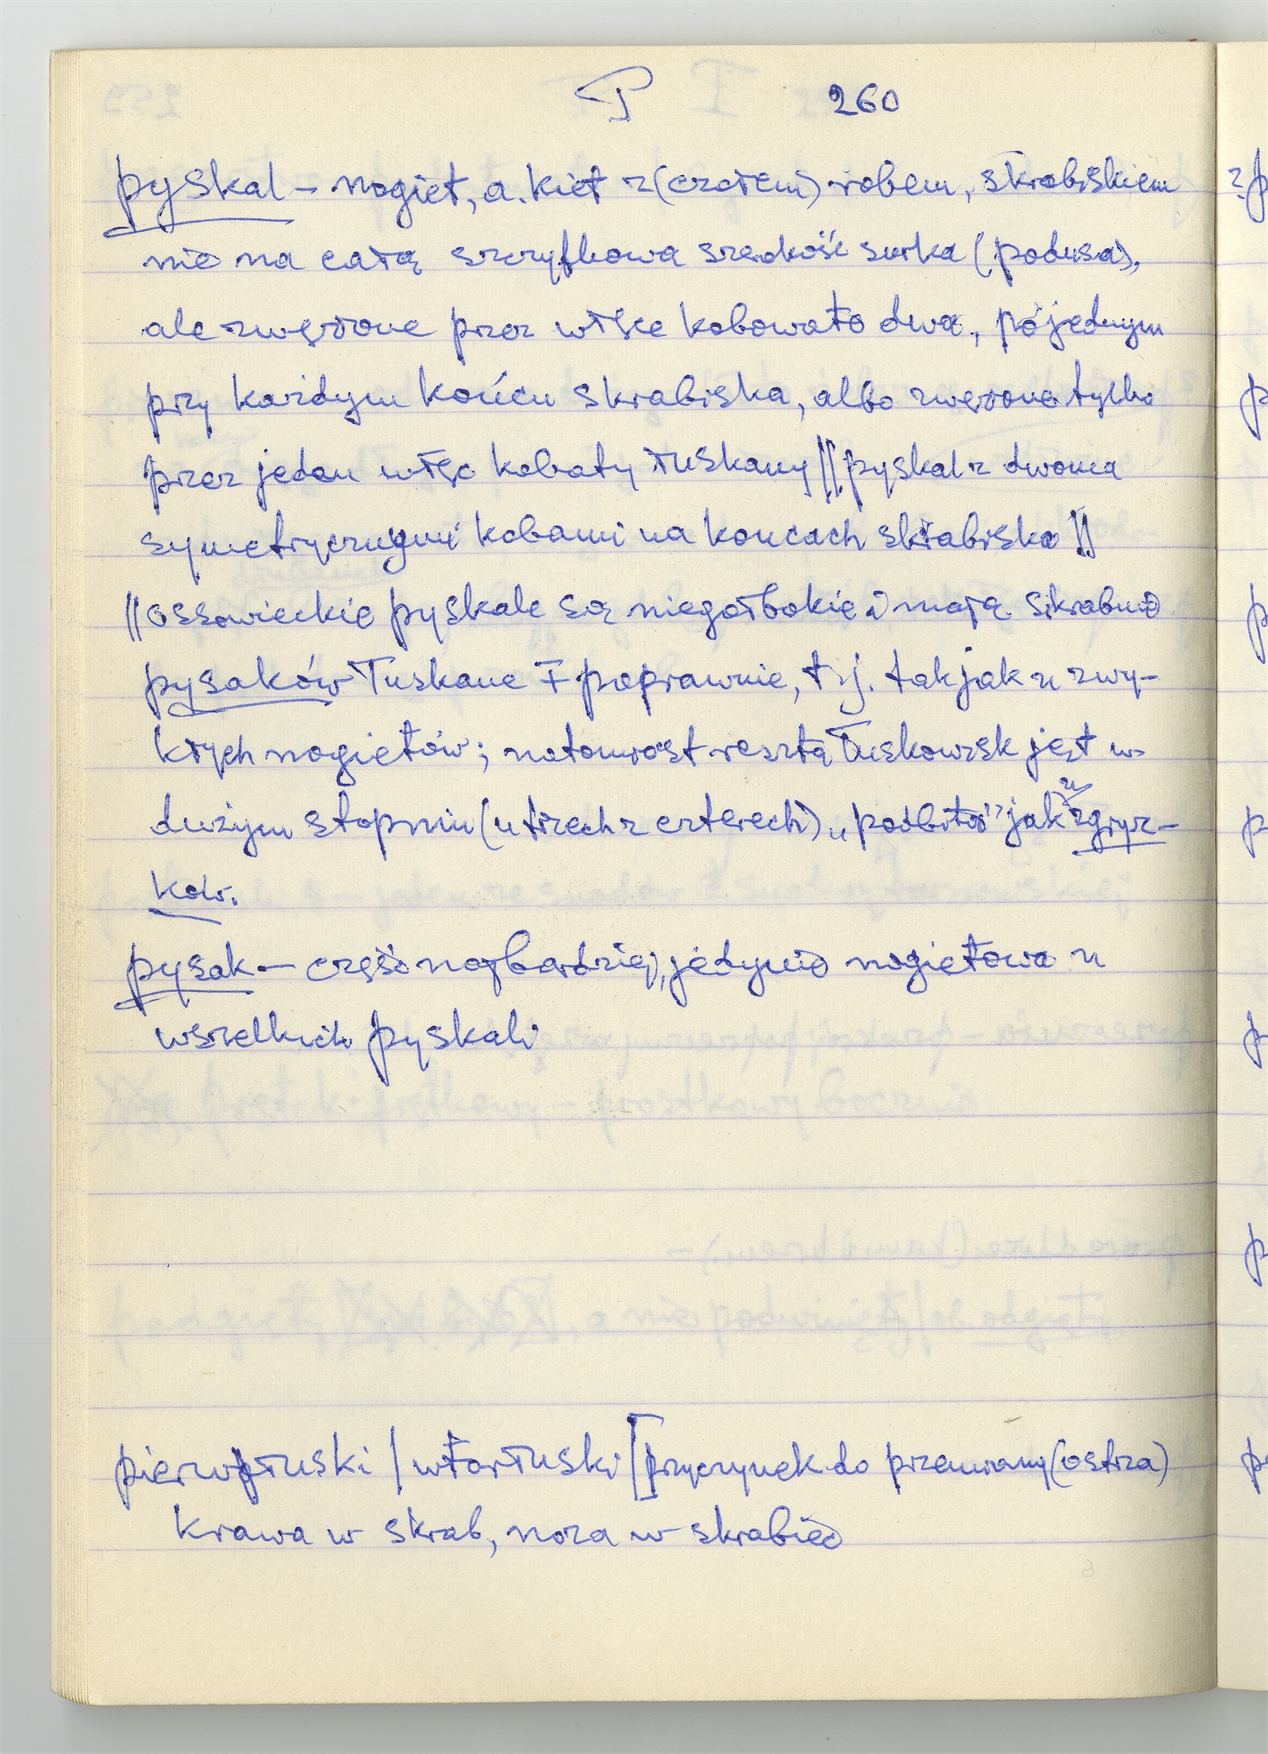 P 260
pyskal – nogieł, a. kieł z (czołem) robem, skrobiskiem
nie na całą szczyfkową szerokość surka (podusa),
ale zwężone przez więce kobowato dwa, po jednym
przy każdym końcu skrabiska, albo zwężone tylko
przez jeden więc kobaty łuskany || pyskal z dwoma
symetrycznymi kobami na końcach skrabiska ||
|| ossowieckie pyskale są niegołbokie i mają skrabnie
pysaków łuskane poprawnie, t.j. tak jak u zwy-
kłych nogiełów; natomiast resztą łuskowisk jest w
dużym stopniu (u trzech z czterech) „podbitość" jak u zgryz-
ków.
pysak – część najbardziej, jedynie nogiełowa u
wszelkich pyskali
pierwołuski / wtorłuski [przyczynek do przemiany (ostrza)
krawa w skrab, noża w skrabieć